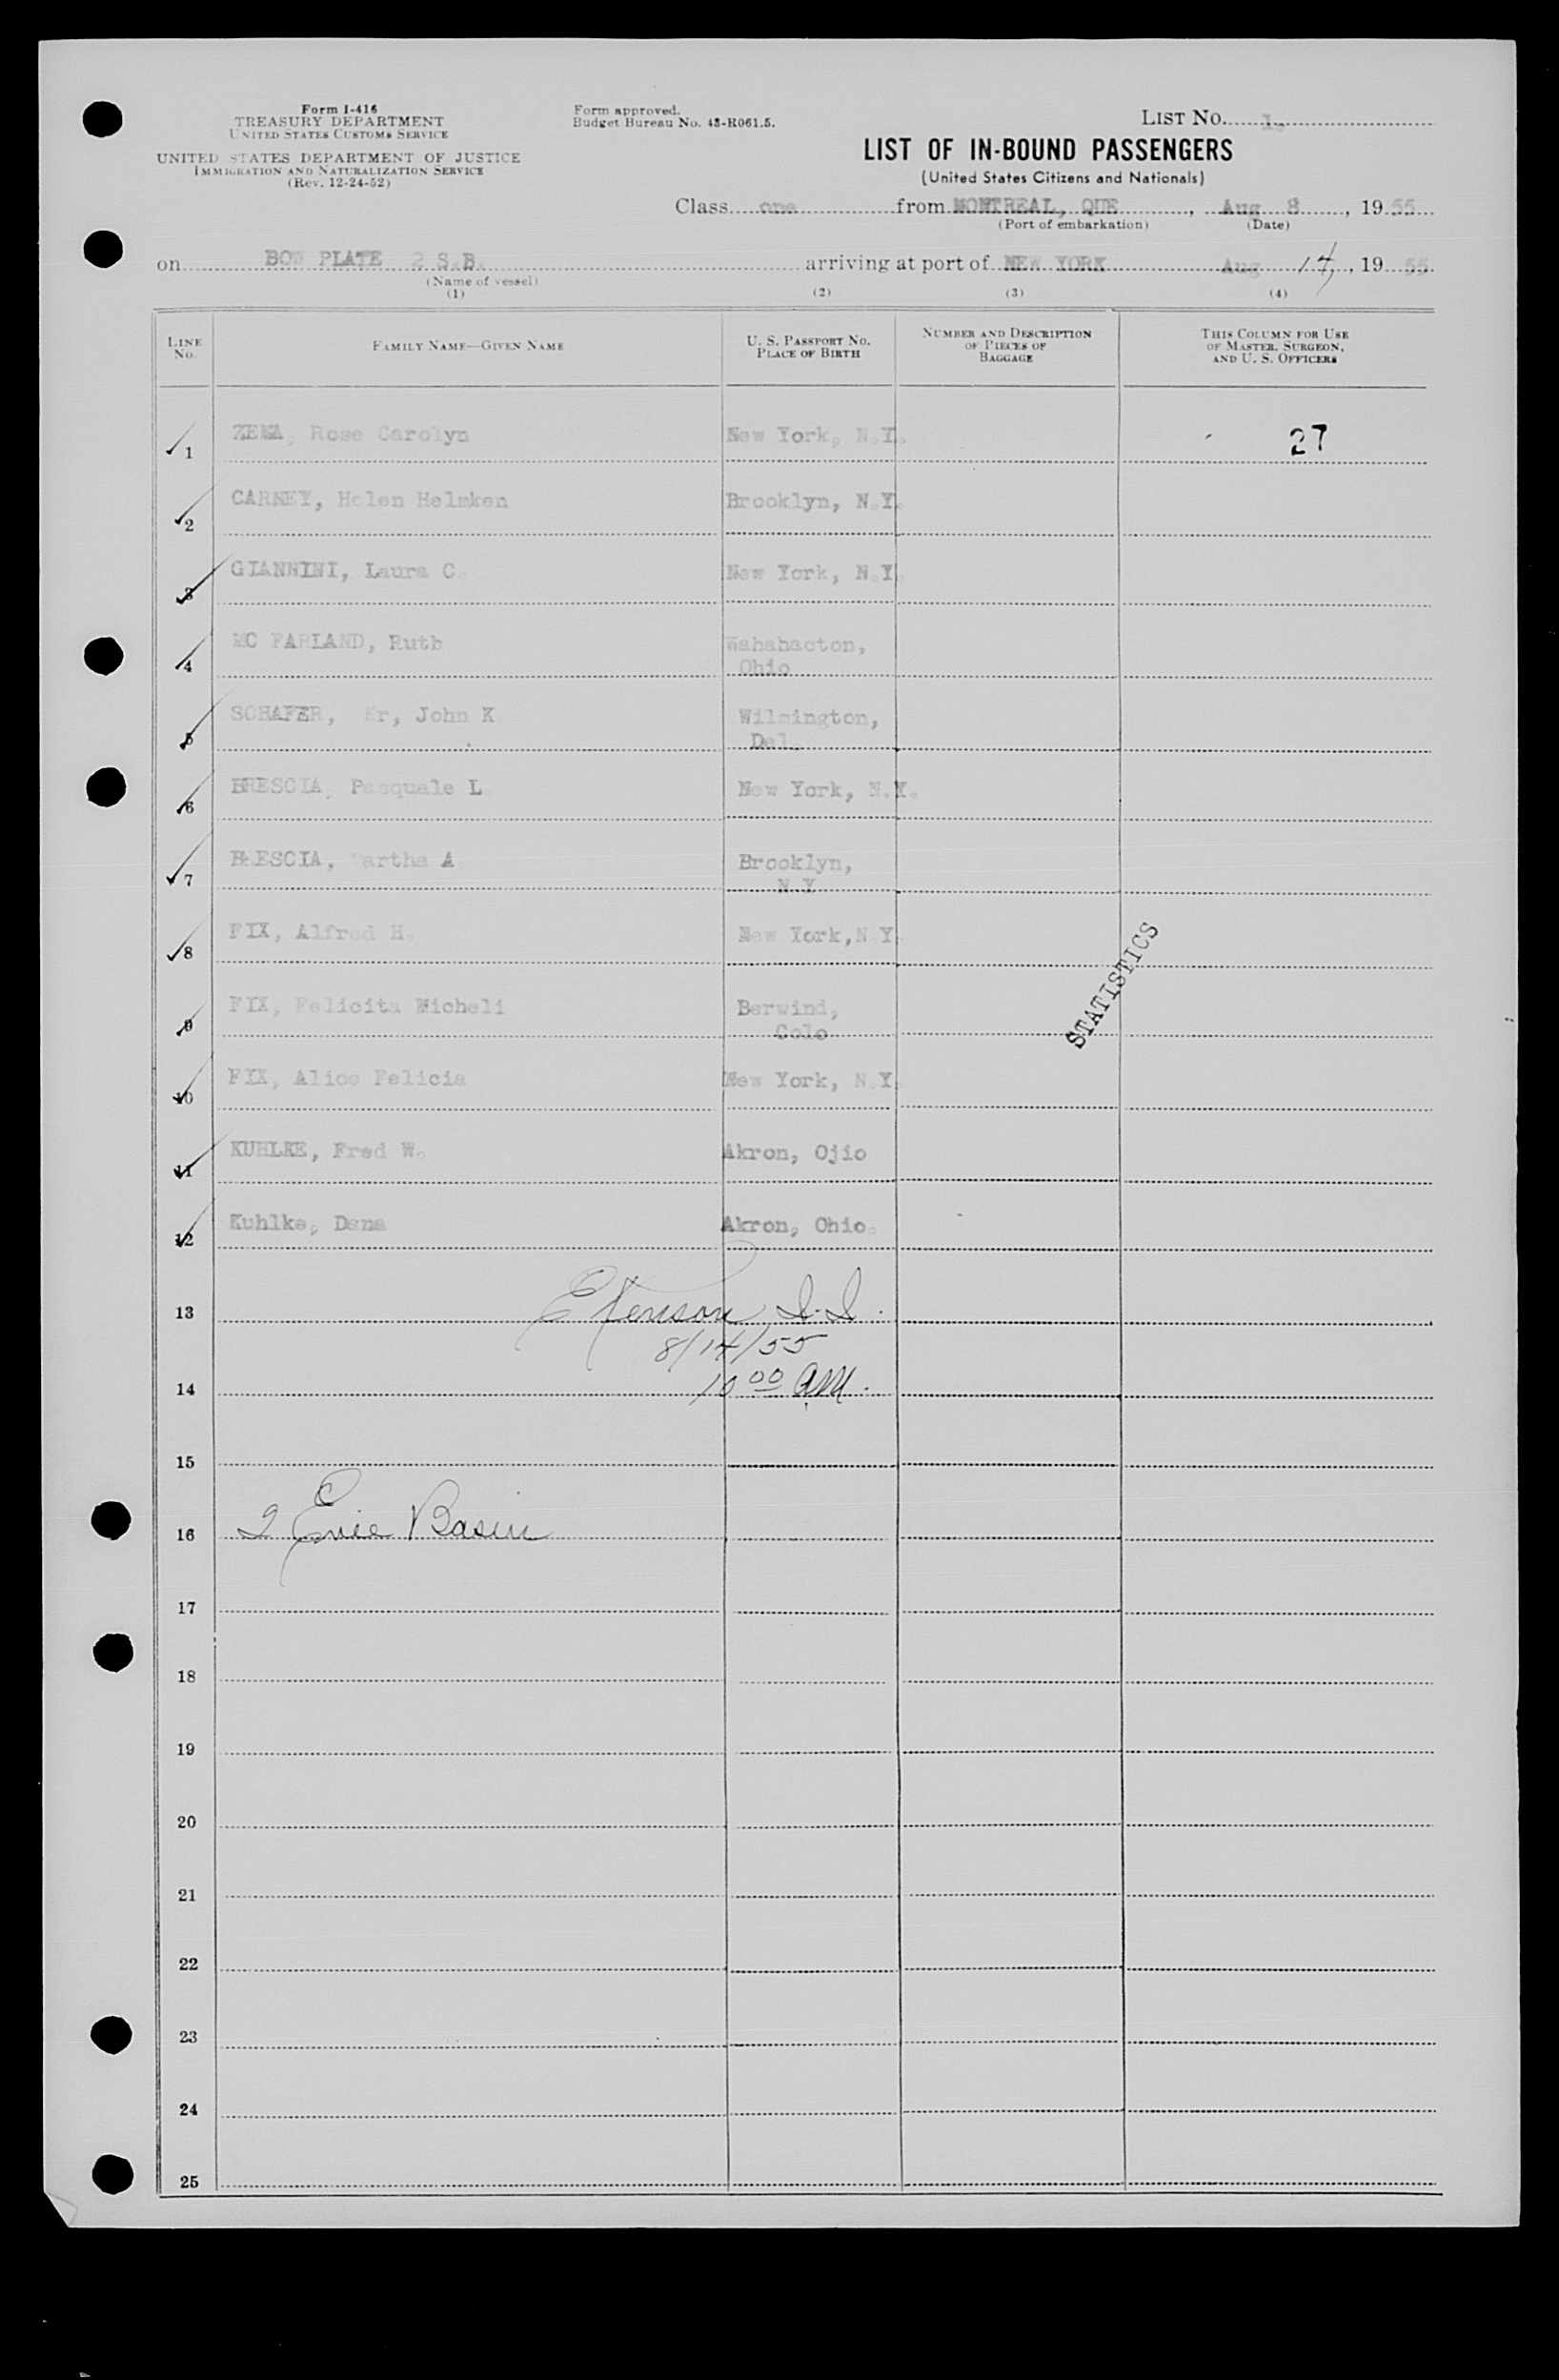 Form I-416
TREASURY DEPARTMENT
UNITED STATES CUSTOMS SERVICE
UNITED STATES DEPARTMENT OF JUSTICE
IMMIGRATION AND NATURALIZATION SERVICE
(Rev. 12-24-52)
Form approved.
Budget Bureau No. 43-R061.5.
LIST No. 1.
LIST OF IN-BOUND PASSENGERS
(United States Citizens and Nationals)
Class one from MONTREAL, QUE, Aug 8, 19 55
(Port of embarkation) (Date)
on BOW PLATE 2 S.B. arriving at port of NEW YORK Aug 14, 19 55
(Name of vessel)
(1) (2) (3) (4)
LINE No. FAMILY NAME—GIVEN NAME U. S. PASSPORT NO. PLACE OF BIRTH NUMBER AND DESCRIPTION OF PIECES OF BAGGAGE THIS COLUMN FOR USE OF MASTER, SURGEON, AND U. S. OFFICERS
1 ZEMA, Rose Carolyn New York, N.Y. 27
2 CARNEY, Helen Helmken Brooklyn, N.Y.
3 GIANNINI, Laura C. New York, N.Y.
4 MC FARLAND, Ruth Wahahacton,
Ohio
5 SCHAFER, Mr, John K Wilmington,
Del.
6 BRESCIA, Pasquale L. New York, N.Y.
7 BRESCIA, Martha A Brooklyn,
N Y
8 FIX, Alfred H. New York, N.Y.
9 FIX, Felicita Micheli Berwind,
Colo
STATISTICS
10 FIX, Alice Felicia New York, N.Y.
11 KUHLKE, Fred W. Akron, Ojio
12 Kuhlke, Dana Akron, Ohio.
13
8/14/55
14 10 00 AM.
15
16 2 Erie Basin
17
18
19
20
21
22
23
24
25